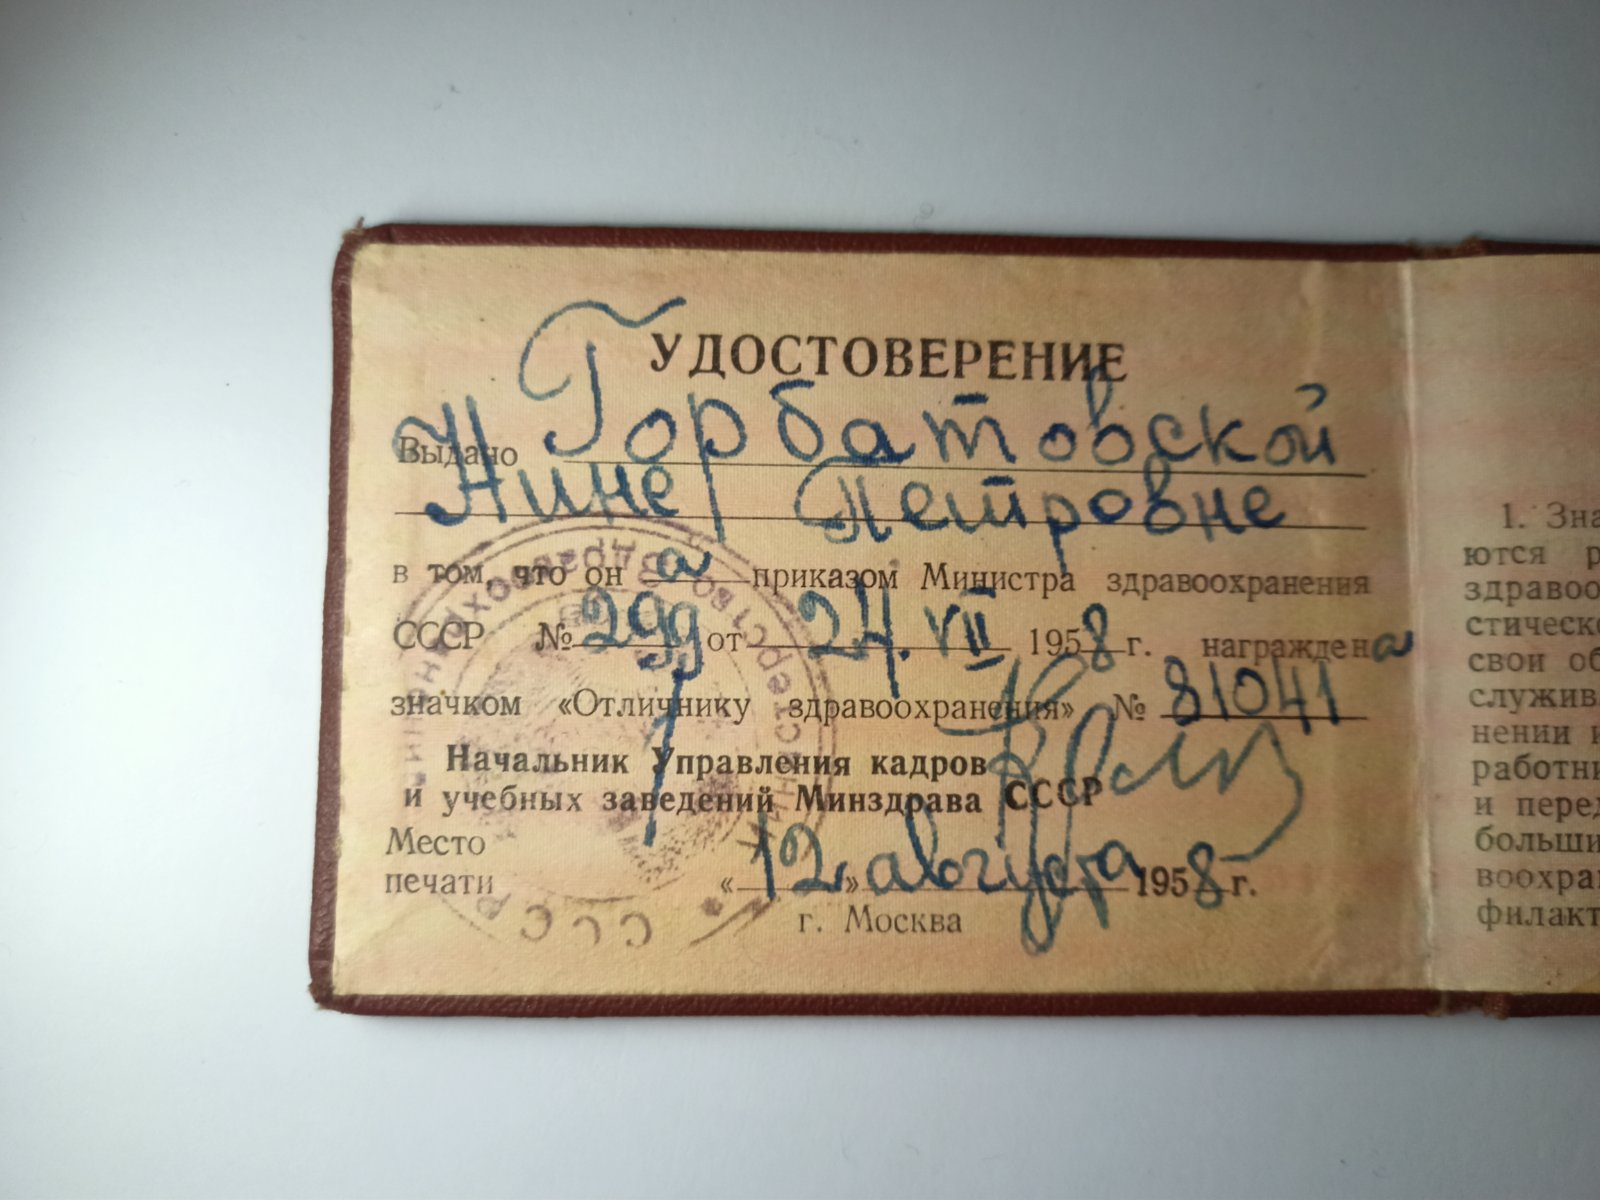 УДОСТОВЕРЕНИЕ
Выдано Горбатовской
Нине Петровне
в том, что он а приказом Министра здравоохранения
СССР № 299 от 24.VII 1958 г. награждена
значком «Отличнику здравоохранения» № 81041
Начальник Управления кадров
и учебных заведений Минздрава СССР
Место
печати
«12» августа 1958 г.
г. Москва
Министерство Здравоохранения
СССР
1. Зна
ются р
здравоо
стическо
свои об
служив
нении и
работни
и перед
больши
воохран
филакт